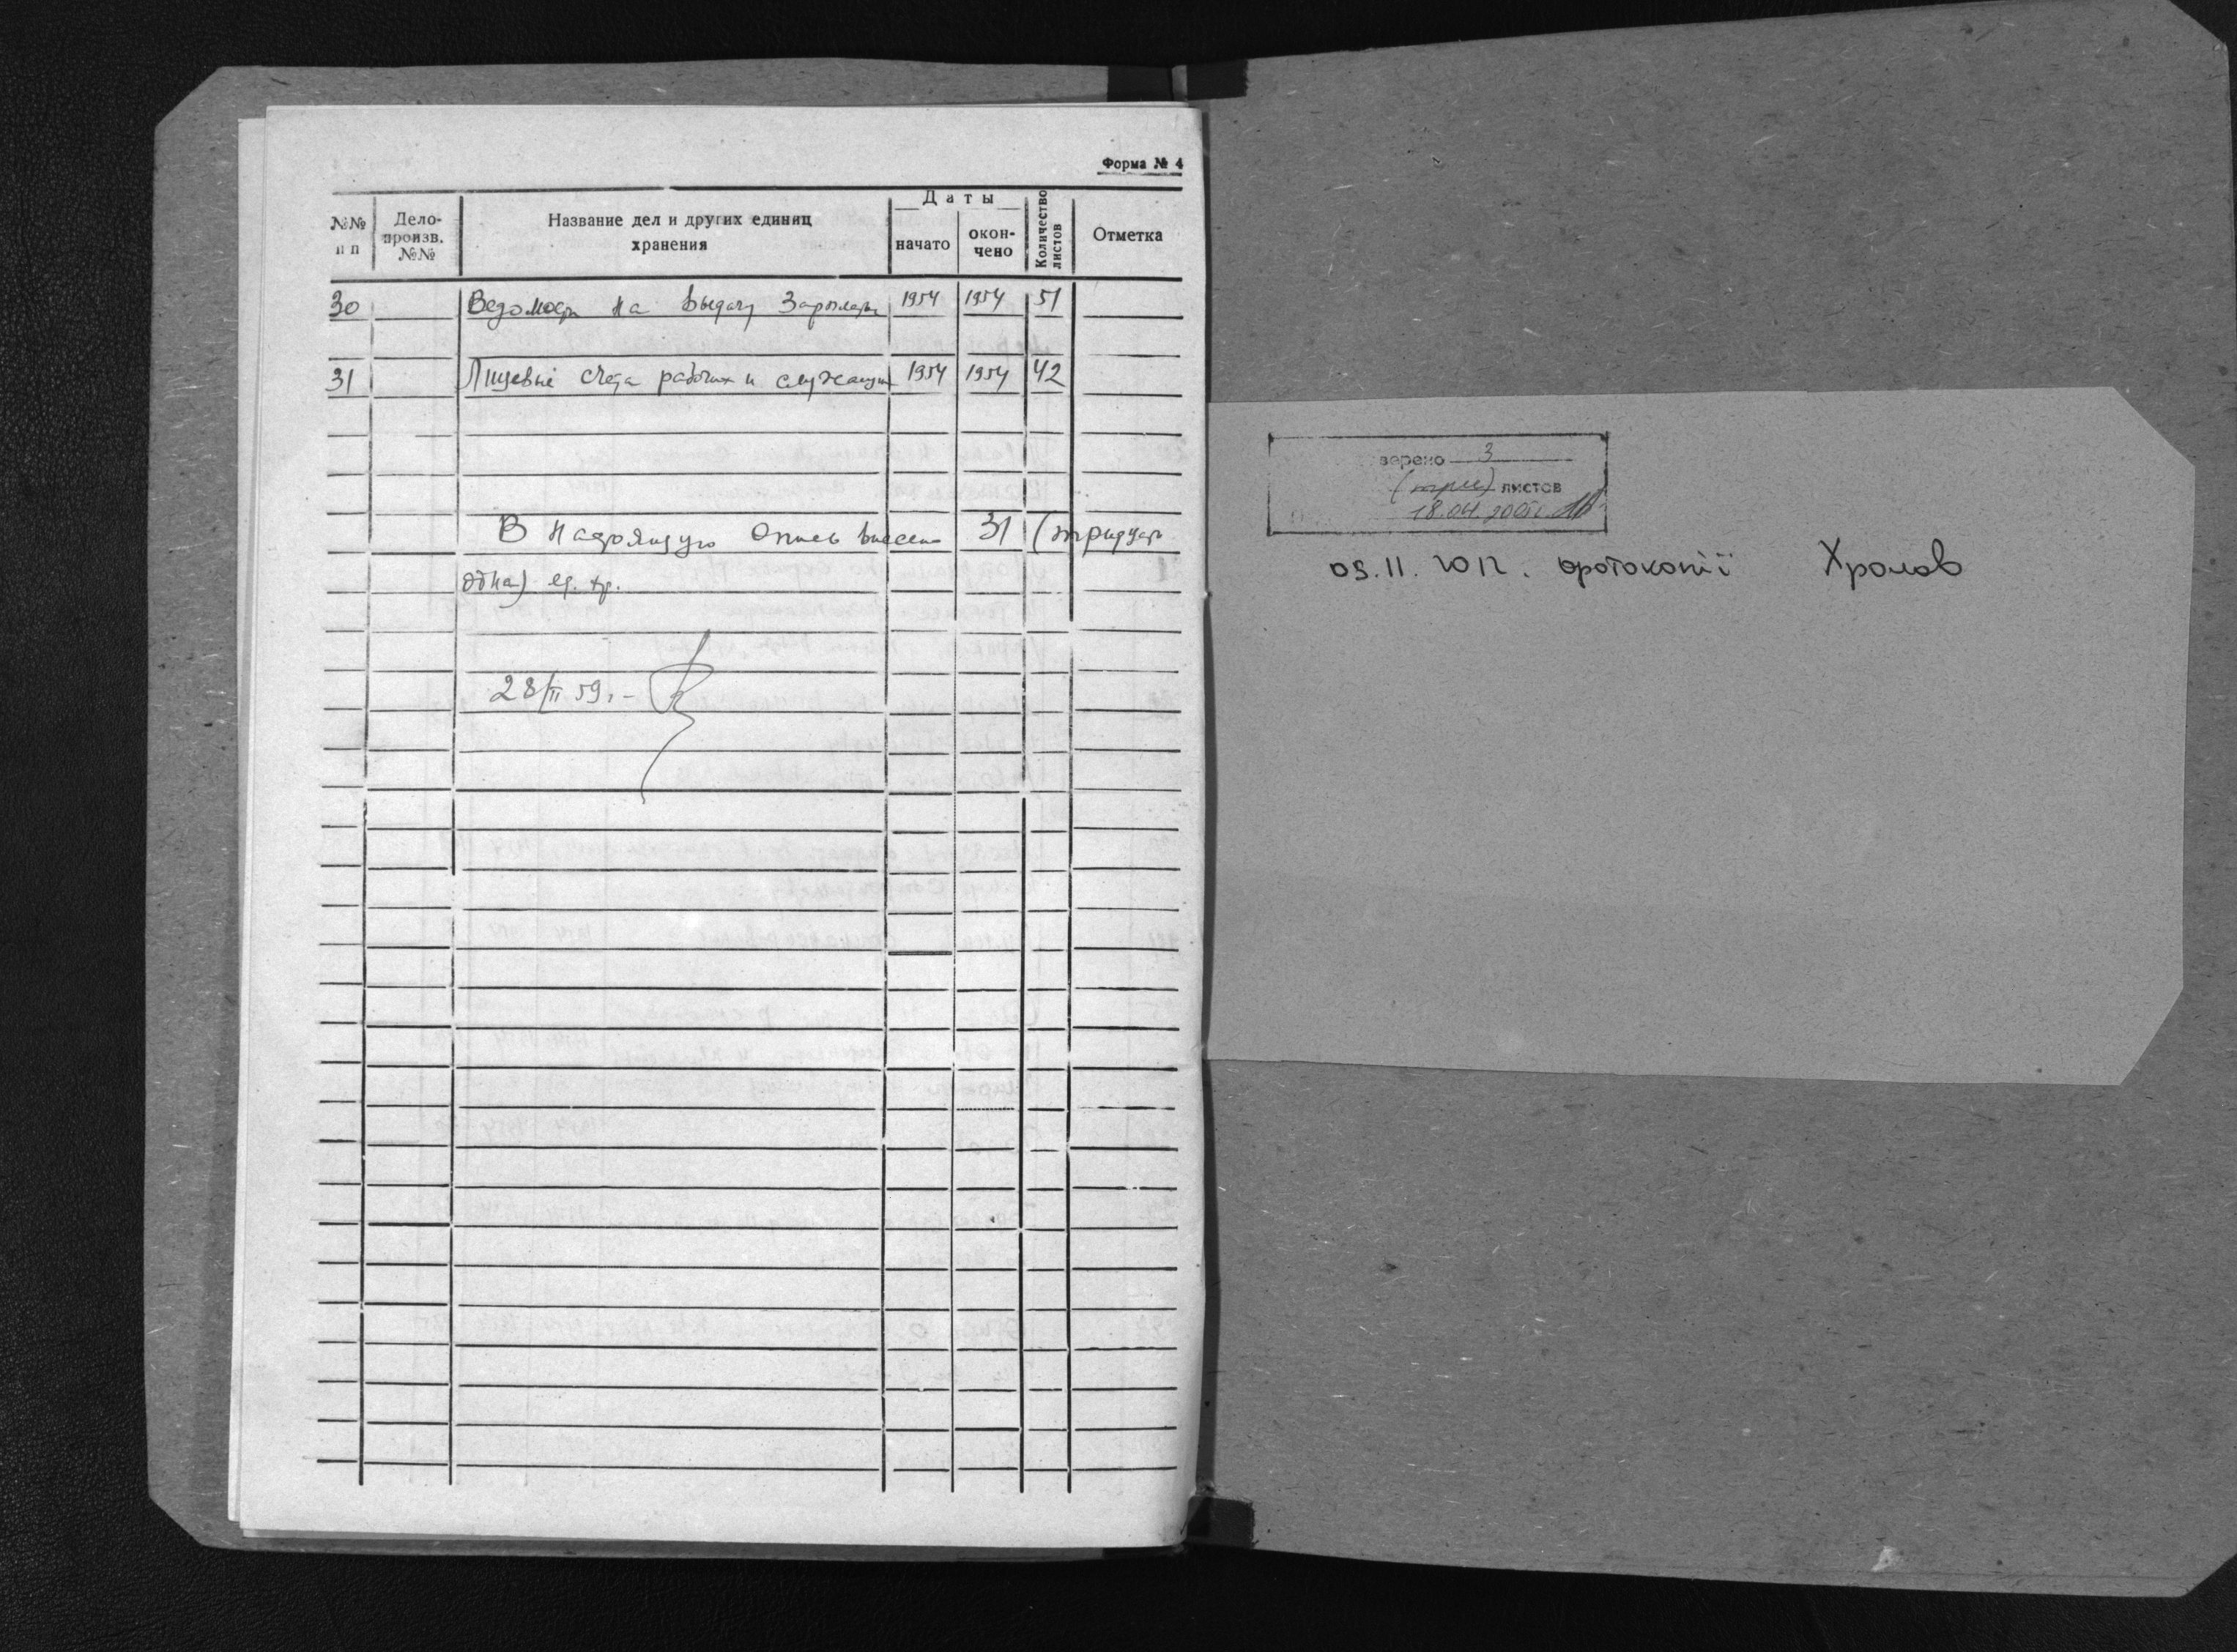 Форма № 4
№№ п п
Дело-произв. №№
Название дел и других единиц хранения
Даты
начато
окон-чено
Количество листов
Отметка
30 Ведомости на выдачу зарплаты 1954 1954 51
31 Лицевые счета рабочих и служащих 1954 1954 42
В настоящую опись внесено 31 (тридцать
одна) ед. хр.
28/II 59 г.
верено 3
(три) листов
18.04.
09.11.2012. фотокопії Хролов